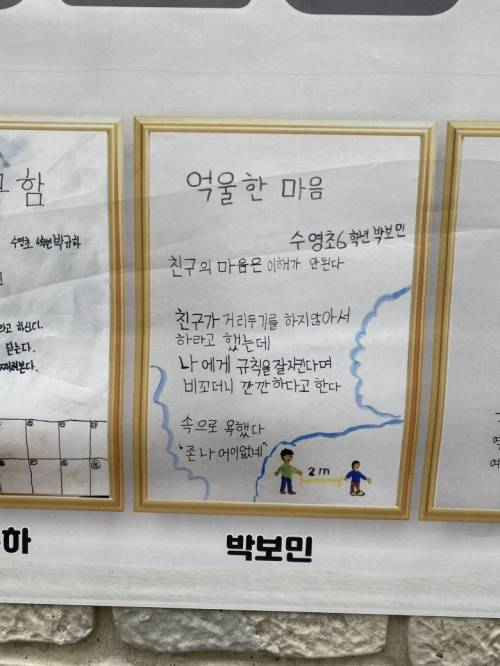 함
수영초 박규하
라고 하신다.
믿는다.
억울한 마음
수영초6학년 박보민
친구의 마음은 이해가 안된다
친구가 거리두기를 하지않아서
하라고 했는데
나에게 규칙을 잘지킨다며
비꼬더니 깐깐하다고 한다
속으로 욕했다
"존나 어이없네"
2m
하
박보민